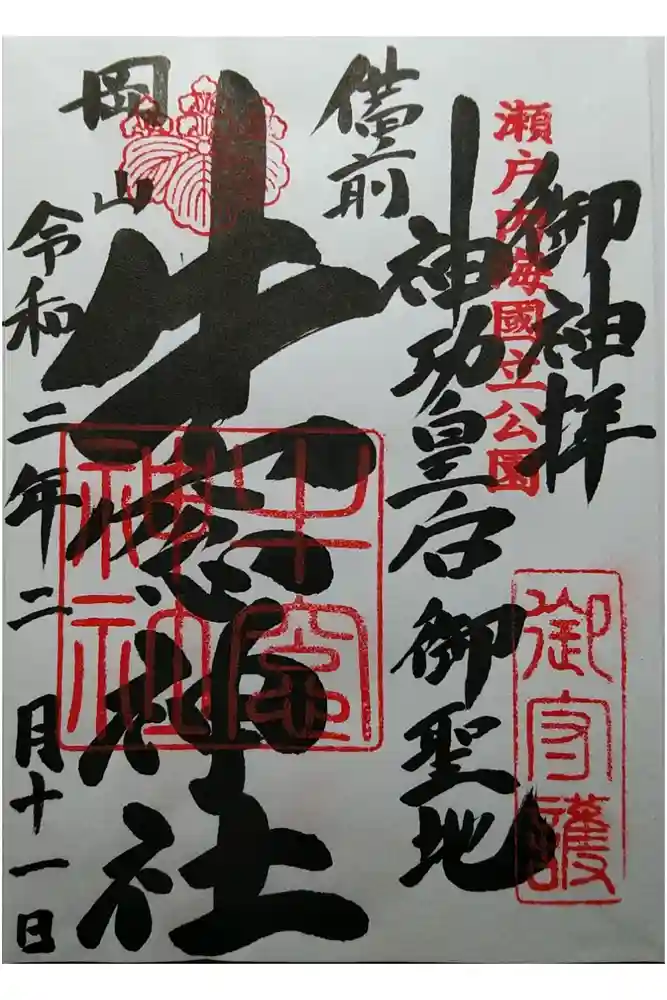 瀬戸内海國立公園
御神拝
神功皇后御聖地
御守護
備前
牛窓神社
牛窓神社
岡山
令和二年二月十一日